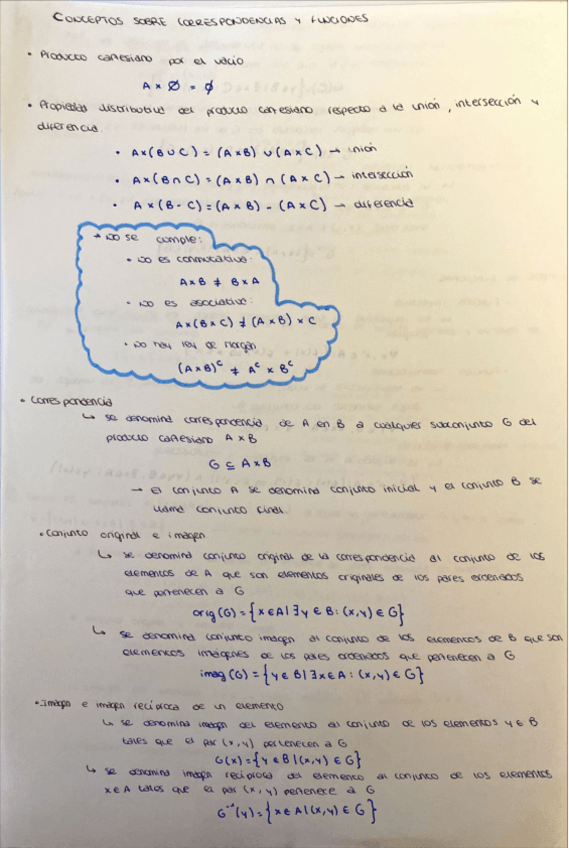 CONCEPTOS SOBRE CORRESPONDENCIAS Y FUNCIONES
• Producto cartesiano por el vacío
A × Ø = Ø
• Propiedad distributiva del producto cartesiano respecto a la unión, intersección y
diferencia.
• A×(B ∪ C) = (A×B) ∪ (A×C) → unión
• A×(B ∩ C) = (A×B) ∩ (A×C) → intersección
• A×(B - C) = (A×B) - (A×C) → diferencia
→ No se cumple:
• No es conmutativa:
A×B ≠ B×A
• No es asociativo:
A×(B×C) ≠ (A×B)×C
• No hay ley de morgan
(A×B)ᶜ ≠ Aᶜ × Bᶜ
• Correspondencia
↳ se denomina correspondencia de A en B a cualquier subconjunto G del
producto cartesiano A×B
G ⊆ A×B
→ El conjunto A se denomina conjunto inicial y el conjunto B se
llama conjunto final.
• Conjunto original e imagen
↳ se denomina conjunto original de la correspondencia al conjunto de los
elementos de A que son elementos originales de los pares ordenados
que pertenecen a G
orig(G) = {x∈A | ∃y∈B : (x,y)∈G}
↳ se denomina conjunto imagen al conjunto de los elementos de B que son
elementos imágenes de los pares ordenados que pertenecen a G
imag(G) = {y∈B | ∃x∈A : (x,y)∈G}
• Imagen e imagen recíproca de un elemento
↳ se denomina imagen del elemento al conjunto de los elementos y∈B
tales que el par (x,y) pertenecen a G
G(x) = {y∈B | (x,y)∈G}
↳ se denomina imagen recíproca del elemento al conjunto de los elementos
x∈A tales que el par (x,y) pertenece a G
G⁻¹(y) = {x∈A | (x,y)∈G}